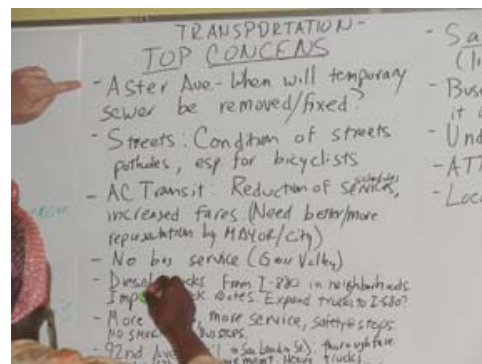 TRANSPORTATION-
TOP CONCENS
- Aster Ave.- When will temporary
sewer be removed/fixed?
- Streets: Condition of streets
potholes, esp for bicyclists
- AC Transit: Reduction of services,
increased fares (Need better/more
representation by MAYOR/City)
- No bus service (
Valley)
From I-880 in neighborhoods
routes. Expand trucks to I-580?
- More
more service, safety @ stops.
BUS STOPS.
- 92nd
San Leandro St) thoroughfare
trucks.
- Sa
(li
- Buse
it
- Und
- ATT
- Loca